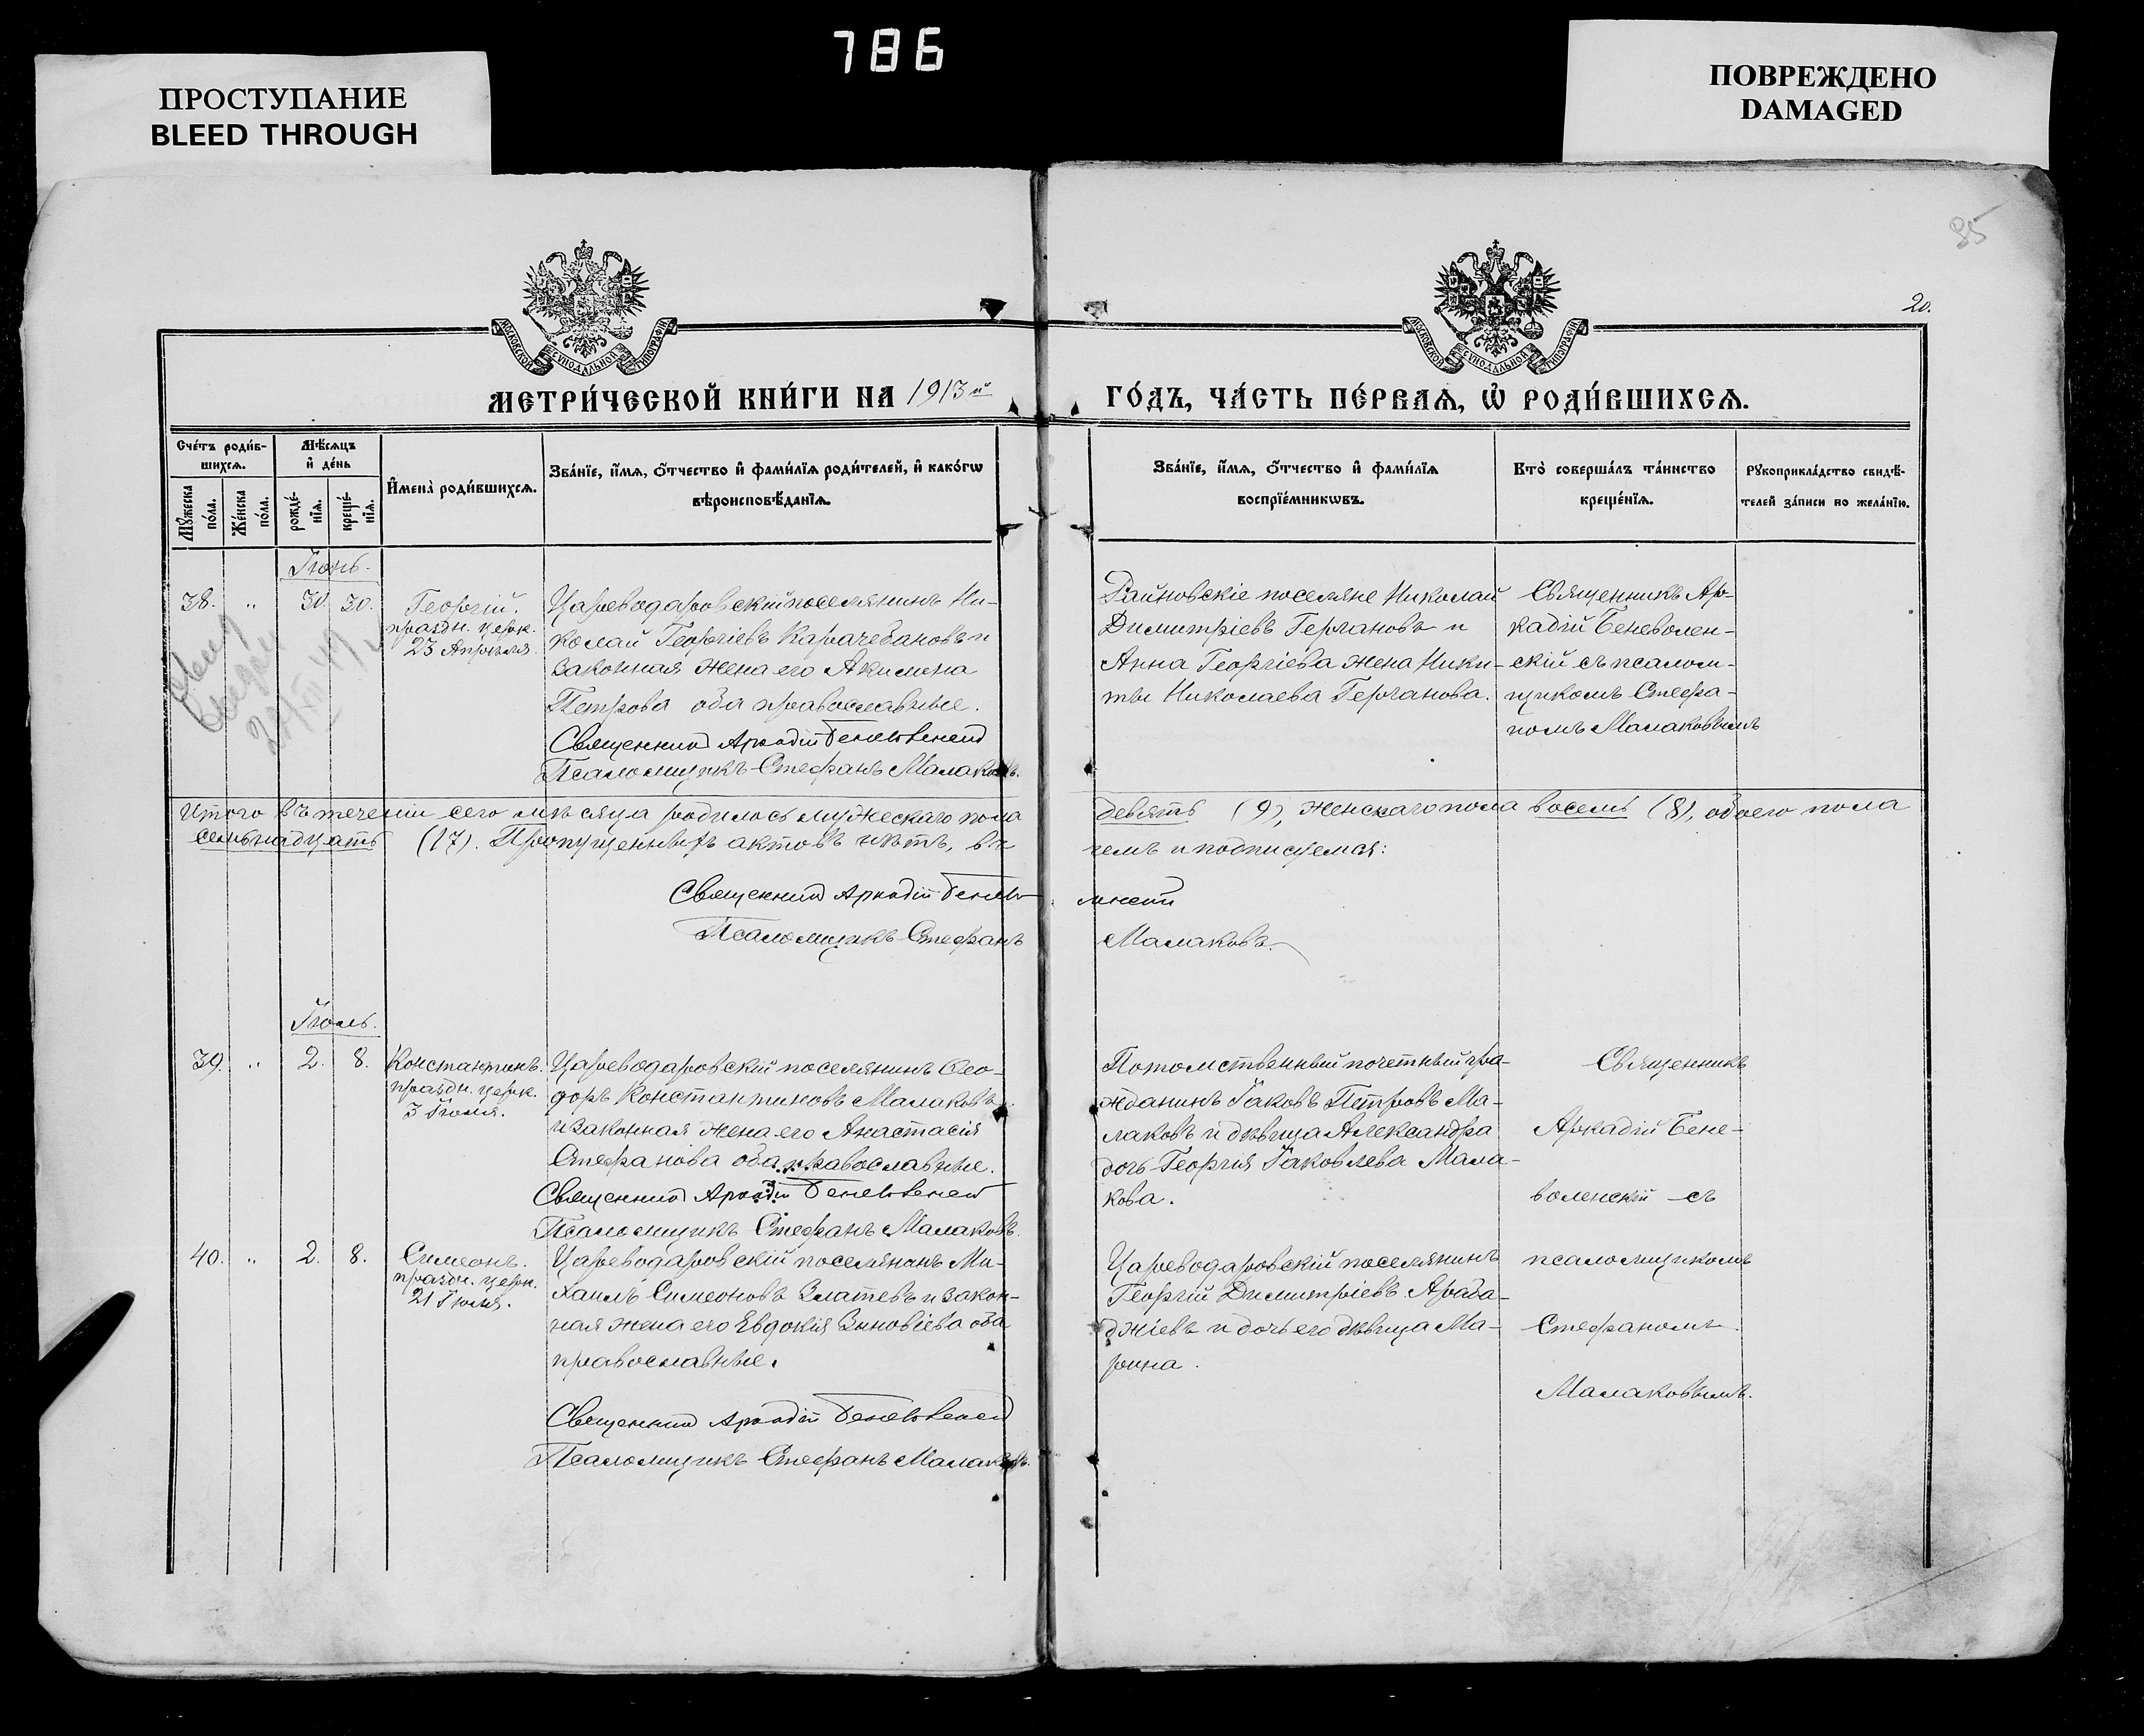 786
ПРОСТУПАНИЕ
BLEED THROUGH
ПОВРЕЖДЕНО
DAMAGED
35
20.
МОСКОВСКОЙ СУНОДАЛЬНОЙ ТИПОГРАФІИ
МОСКОВСКОЙ СУНОДАЛЬНОЙ ТИПОГРАФІИ
МЕТРИ́ЧЕСКОЙ КНИ́ГИ НА 1913й
ГО́ДЪ, ЧА́СТЬ ПЕ́РВАѦ, Ѡ РОДИ́ВШИХСѦ.
Сче́тъ роди́в-
шихсѧ.
Мѣ́сѧцъ
и҆ де́нь
Мꙋ́жеска по́ла.
Же́нска по́ла.
рожде́-
нїѧ.
креще́-
нїѧ.
И҆мена̀ роди́вшихсѧ.
Зва́нїе, и҆́мѧ, ѻ҆́тчество и҆ фами́лїѧ роди́телей, и҆ како́гѡ
вѣроисповѣ́данїѧ.
Зва́нїе, и҆́мѧ, ѻ҆́тчество и҆ фами́лїѧ
воспрїе́мникѡвъ.
Кто̀ соверша́лъ та́инство
креще́нїѧ.
Рꙋкоприкла́дство свидѣ́-
телей за́писи по жела́нїю.
Іюнь.
38. " 30 30. Георгій.
праздн. церк.
23 Апрѣля.
Цареводаровскій поселянинъ Ни-
колай Георгіевъ Карачебановъ и
законная жена его Акилина
Петрова оба православные.
Священникъ Аркадій Беневоленскій
Псаломщикъ Стефанъ Малаковъ.
Райновскіе поселяне Николай
Димитріевъ Герчановъ и
Анна Георгіева жена Ники-
ты Николаева Герчанова.
Священникъ Ар-
кадій Беневолен-
скій съ псалом-
щикомъ Стефа-
номъ Малаковымъ
Итого въ теченіи сего мѣсяца родилось мужескаго пола девять (9), женскаго пола восемь (8), обоего пола
семьнадцать (17). Пропущенныхъ актовъ нѣтъ, въ чемъ и подписуемся:
Священникъ Аркадій Беневоленскій
Псаломщикъ Стефанъ Малаковъ.
Іюль.
39. " 2. 8. Константинъ.
праздн. церк.
3 Іюля.
Цареводаровскій поселянинъ Ѳео-
доръ Константиновъ Малаковъ
и законная жена его Анастасія
Стефанова оба православные.
Священникъ Аркадій Беневоленскій
Псаломщикъ Стефанъ Малаковъ.
Потомственный почетный гра-
жданинъ Іаковъ Петровъ Ма-
лаковъ и дѣвица Александра
дочь Георгія Іаковлева Мала-
кова.
Священникъ
Аркадій Бене-
воленскій съ
псаломщикомъ
Стефаномъ
Малаковымъ.
40. " 2. 8. Симеонъ.
праздн. церк.
21 Іюля.
Цареводаровскій поселянинъ Ми-
хаилъ Симеоновъ Златевъ и закон-
ная жена его Евдокія Зиновіева оба
православные.
Священникъ Аркадій Беневоленскій
Псаломщикъ Стефанъ Малаковъ.
Цареводаровскій поселянинъ
Георгій Димитріевъ Араба-
джіевъ и дочь его дѣвица Ма-
рина.